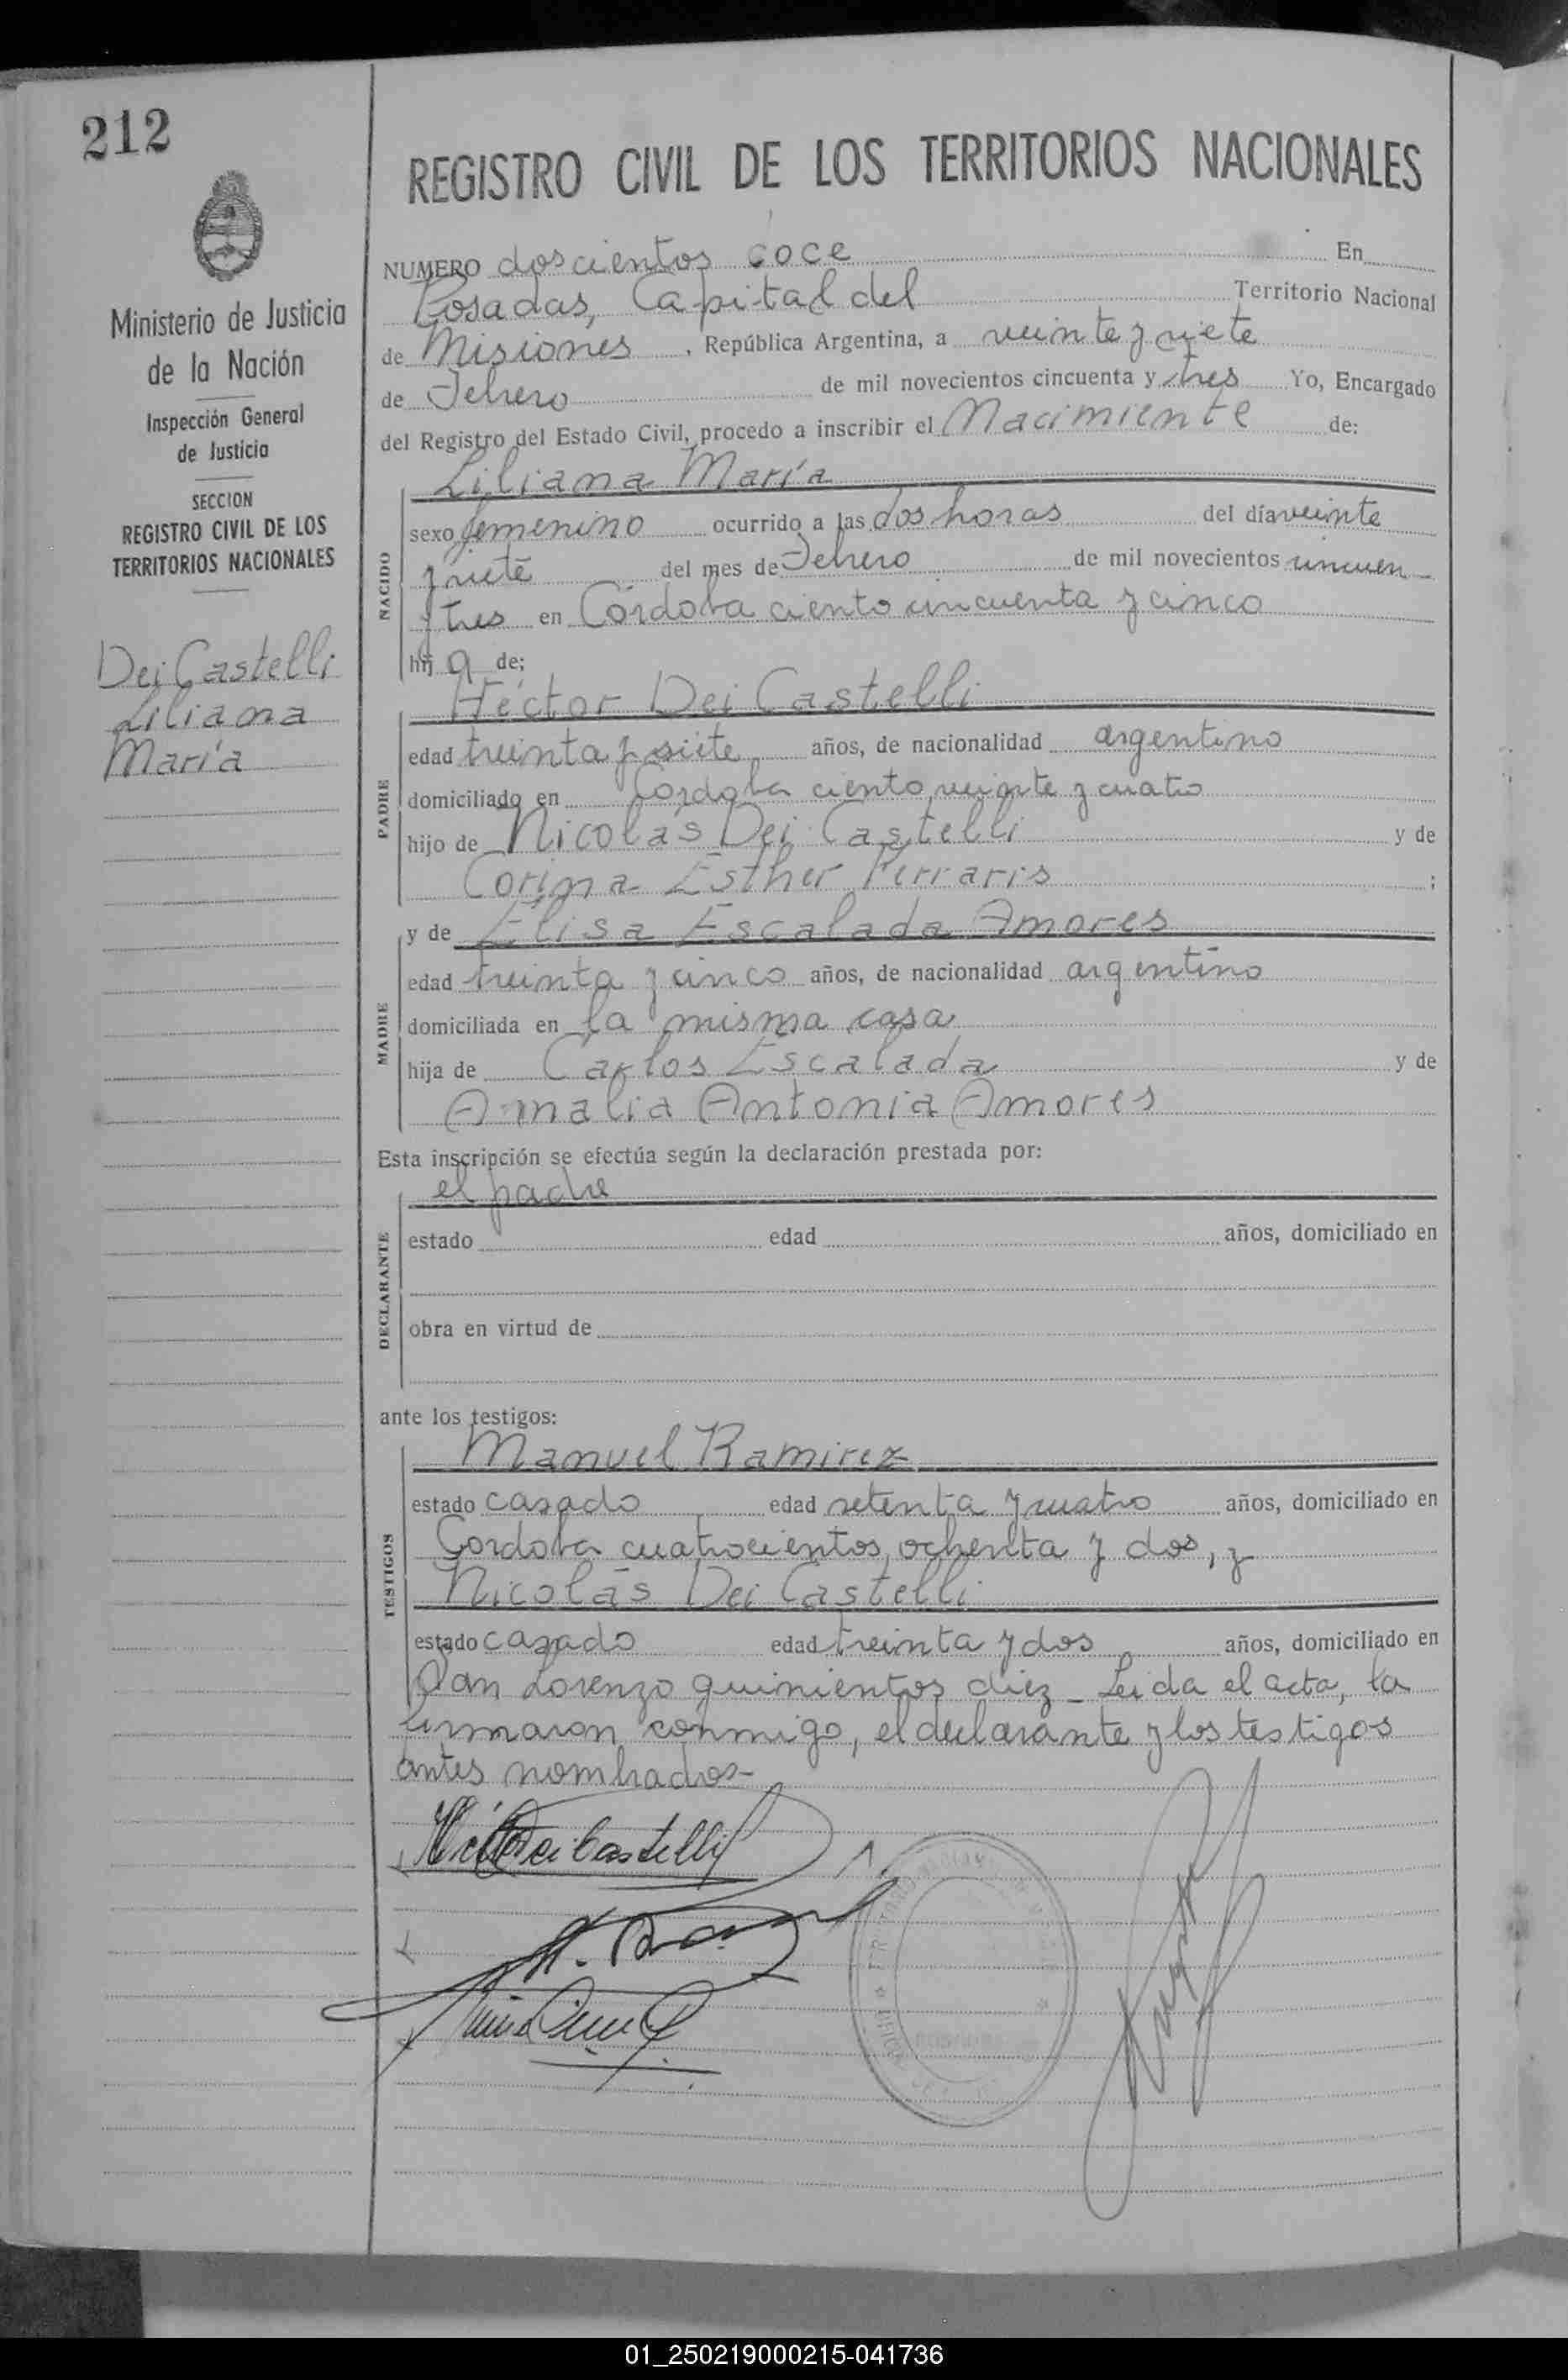 212
Ministerio de Justicia
de la Nación
Inspección General
de Justicia
SECCION
REGISTRO CIVIL DE LOS
TERRITORIOS NACIONALES
Dei Castelli
Liliana
María
REGISTRO CIVIL DE LOS TERRITORIOS NACIONALES
NUMERO doscientos doce En
Posadas, Capital del Territorio Nacional
de Misiones, República Argentina, a veinte y siete
de Febrero de mil novecientos cincuenta y tres Yo, Encargado
del Registro del Estado Civil, procedo a inscribir el Nacimiente de:
Liliana María
NACIDO
sexo femenino ocurrido a las dos horas del día veinte
y siete del mes de Febrero de mil novecientos cincuen
y tres en Córdoba ciento cincuenta y cinco
hij a de;
Héctor Dei Castelli
PADRE
edad treinta y siete años, de nacionalidad argentino
domiciliado en Córdoba ciento veinte y cuatro
hijo de Nicolás Dei Castelli y de
Corina Esther Ferraris ;
y de Elisa Escalada Amores
MADRE
edad treinta y cinco años, de nacionalidad argentino
domiciliada en la misma casa
hija de Carlos Escalada y de
Amalia Antonia Amores
Esta inscripción se efectúa según la declaración prestada por:
el padre
DECLARANTE
estado edad años, domiciliado en
obra en virtud de
ante los testigos:
Manuel Ramirez
TESTIGOS
estado casado edad setenta y cuatro años, domiciliado en
Cordoba cuatrocientos ochenta y dos, y
Nicolás Dei Castelli
estado casado edad treinta y dos años, domiciliado en
San Lorenzo quinientos diez - Leida el acta, la
firmaron conmigo, el declarante y los testigos
antes nombrados-
Dei Castelli
01_250219000215-041736